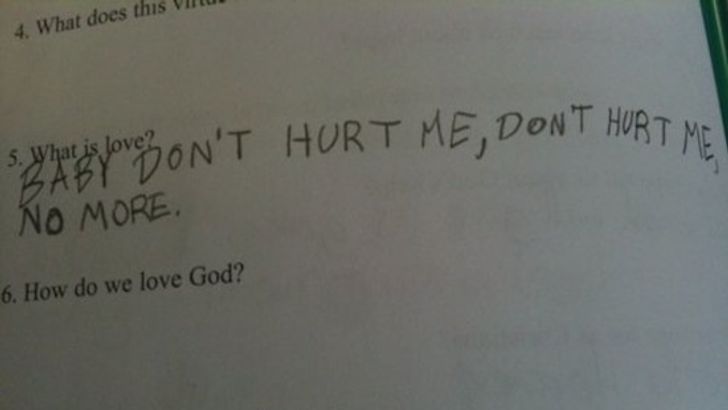 4. What does this
5. What is love?
BABY DON'T HURT ME, DON'T HURT ME,
NO MORE.
6. How do we love God?